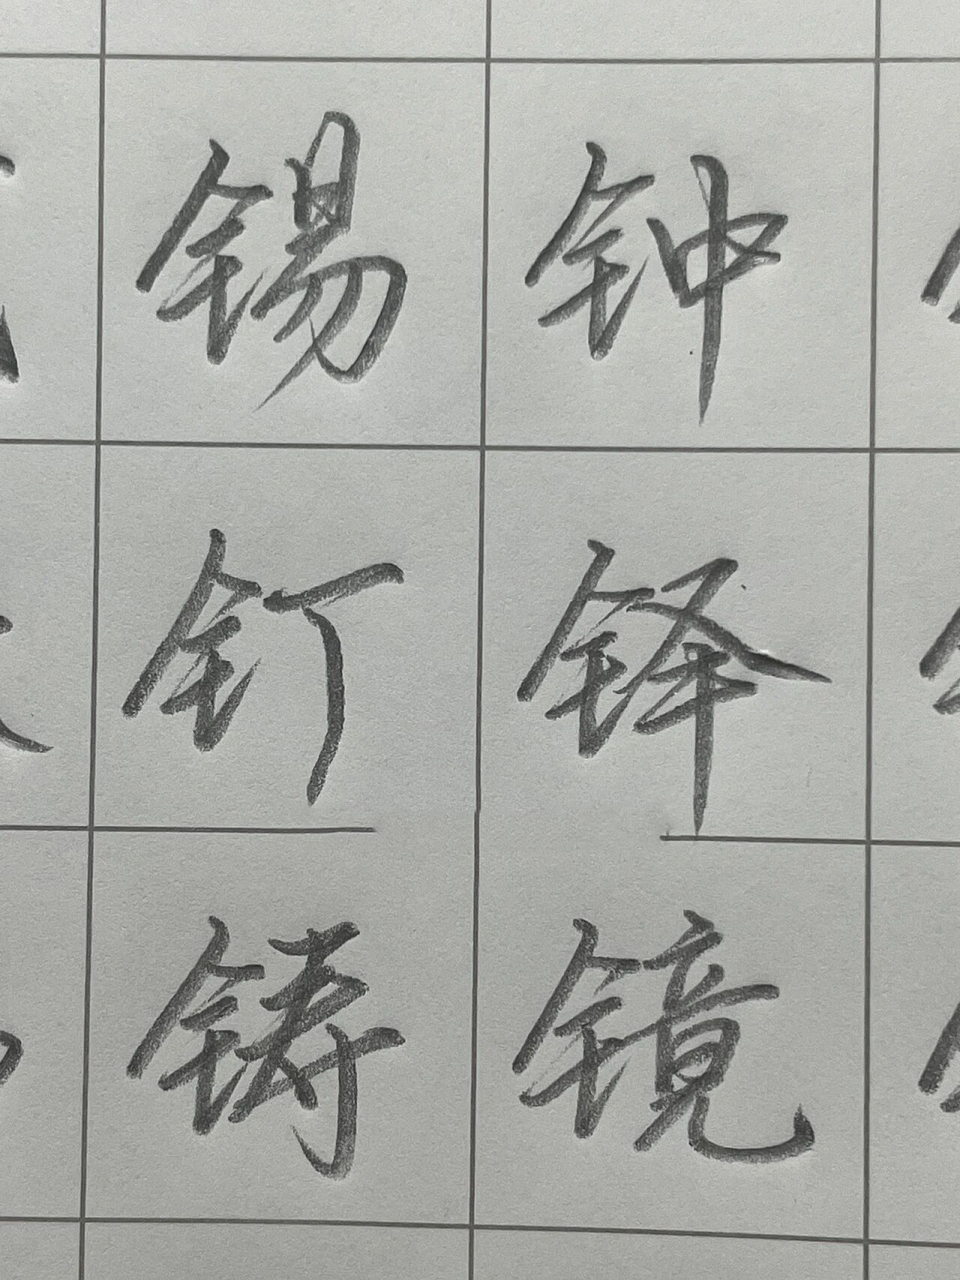 锡钟
钉铎
铸镜